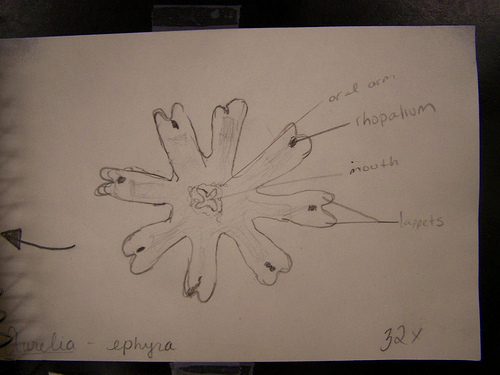 oral arm
rhopalium
mouth
lappets
Aurelia - ephyra
32x